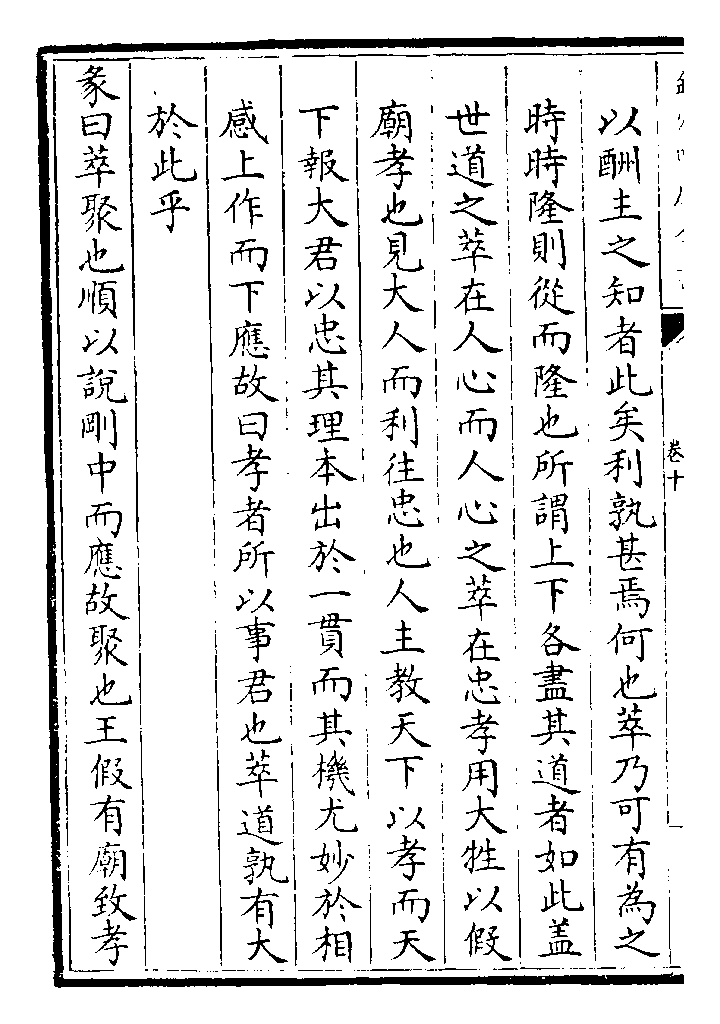 以酬主之知者此矣利孰甚焉何也萃乃可有為之
時時隆則從而隆也所謂上下各盡其道者如此盖
世道之萃在人心而人心之萃在忠孝用大牲以假
廟孝也見大人而利往忠也人主教天下以孝而天
下報大君以忠其理本出於一貫而其機尤妙於相
感上作而下應故曰孝者所以事君也萃道孰有大
於此乎
彖曰萃聚也順以說剛中而應故聚也王假有廟致孝
卷十